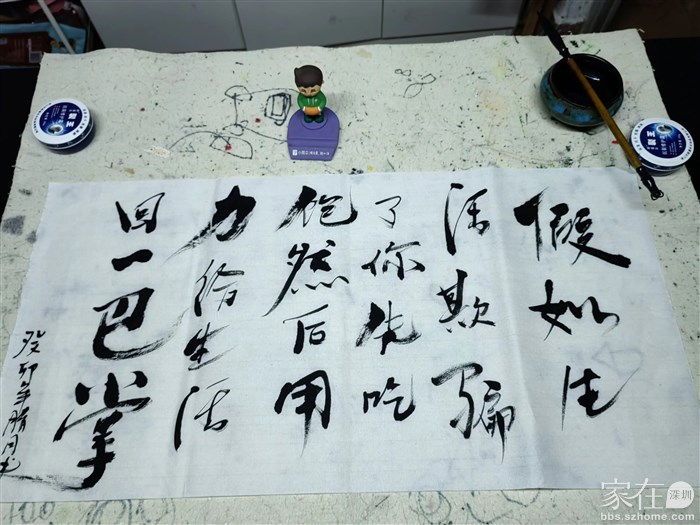 假如生
活欺骗
了你先吃
饱然后用
力给生活
回一巴掌
癸卯年腊月书
家在深圳
bbs.szhome.com